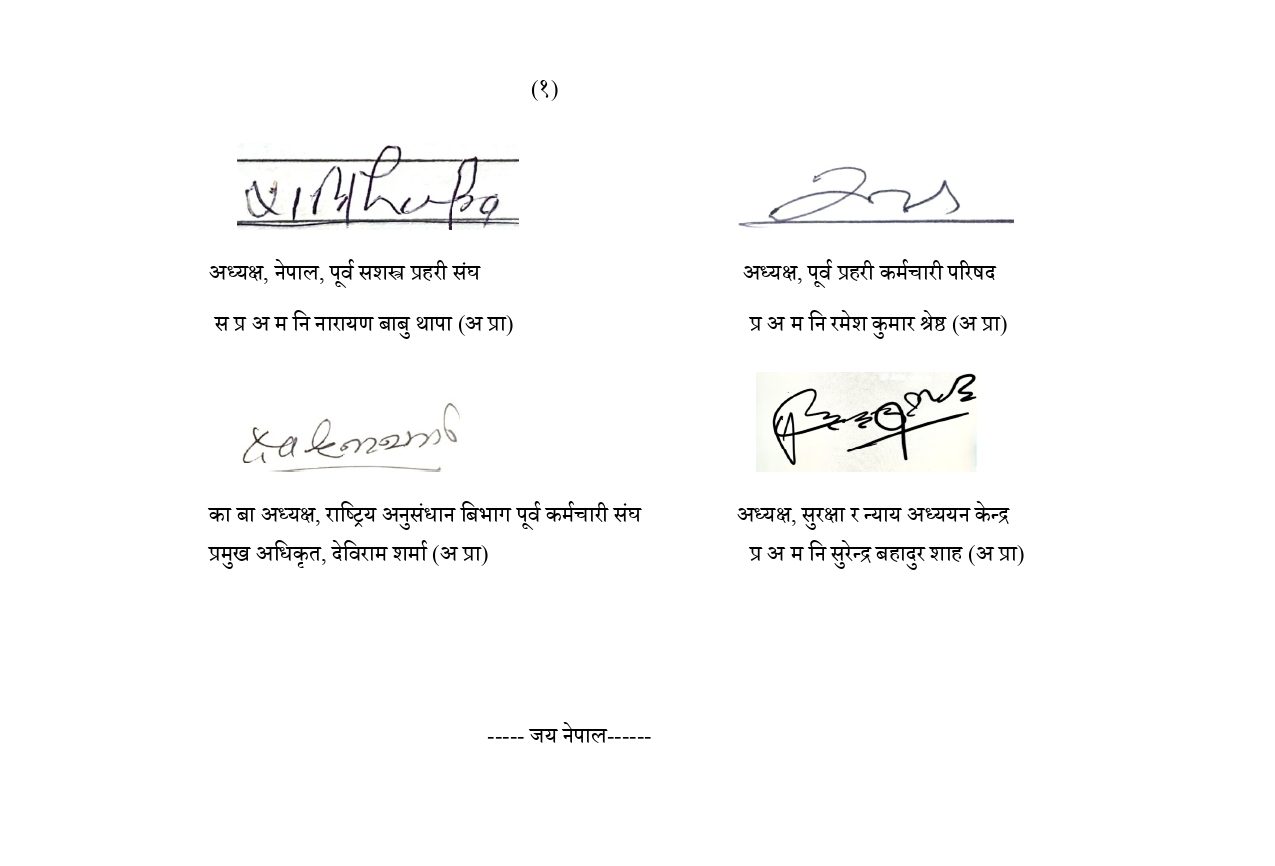 (१)
अध्यक्ष, नेपाल, पूर्व सशस्त्र प्रहरी संघ
स प्र अ म नि नारायण बाबु थापा (अ प्रा)
अध्यक्ष, पूर्व प्रहरी कर्मचारी परिषद
प्र अ म नि रमेश कुमार श्रेष्ठ (अ प्रा)
का बा अध्यक्ष, राष्ट्रिय अनुसंधान बिभाग पूर्व कर्मचारी संघ
प्रमुख अधिकृत, देविराम शर्मा (अ प्रा)
अध्यक्ष, सुरक्षा र न्याय अध्ययन केन्द्र
प्र अ म नि सुरेन्द्र बहादुर शाह (अ प्रा)
----- जय नेपाल------